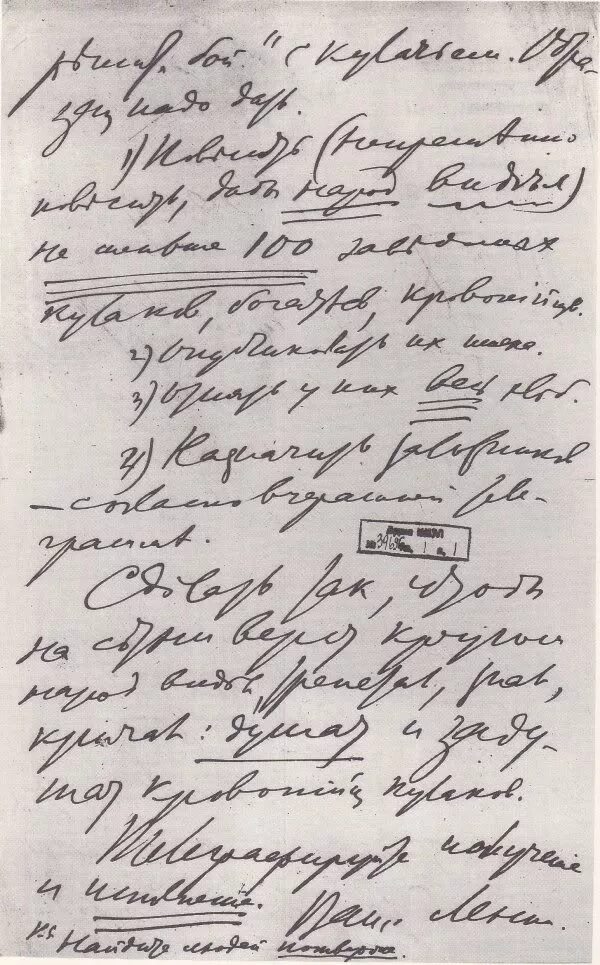 решит. бой" с кулачьем. Обра-
зец надо дать.
1) Повесить (непременно
повесить, дабы народ видел)
не меньше 100 заведомых
кулаков, богатеев, кровопийц.
2) Опубликовать их имена.
3) Отнять у них весь хлеб.
4) Назначить заложников
— согласно вчерашней теле-
грамме.
Сделать так, чтобы
на сотни верст кругом
народ видел, трепетал, знал,
кричал: душат и заду-
шат кровопийц кулаков.
Телеграфируйте получение
и исполнение. Ваш Ленин.
P.S. Найдите людей потверже.